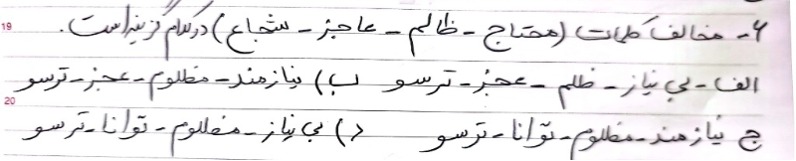 19
۶- مخالف کلمات (محتاج - ظالم - عاجز - شجاع) در کدام گزینه است.
الف - بی نیاز - ظلم - عجز - ترسو ب) نیازمند - مظلوم - عجز - ترسو
20
ج نیازمند - مظلوم - توانا - ترسو د) بی نیاز - مظلوم - توانا - ترسو